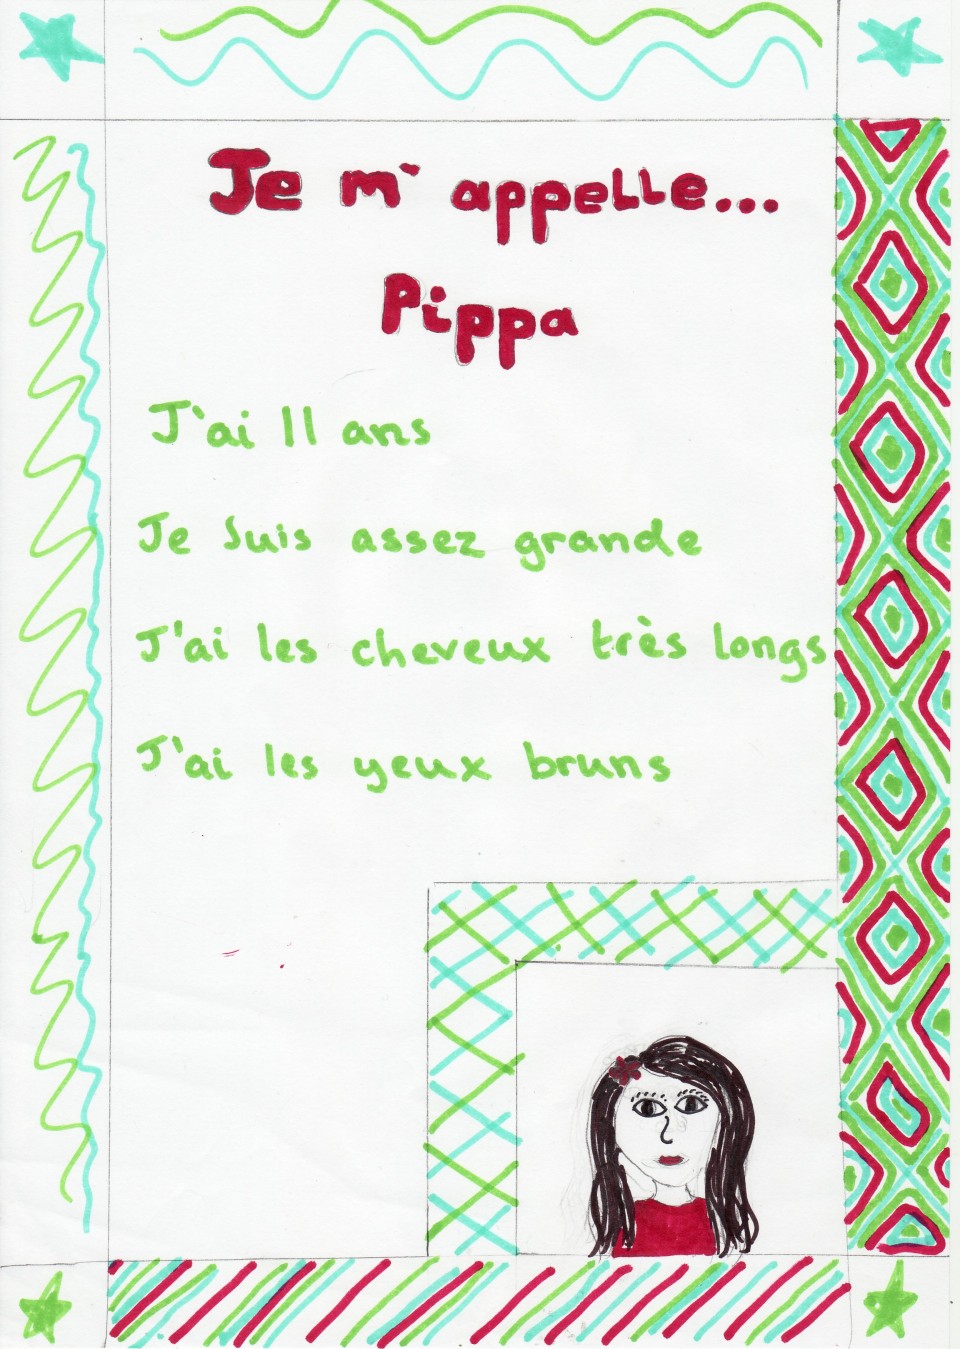 Je m'appelle...
Pippa
J'ai 11 ans
Je suis assez grande
J'ai les cheveux très longs
J'ai les yeux bruns